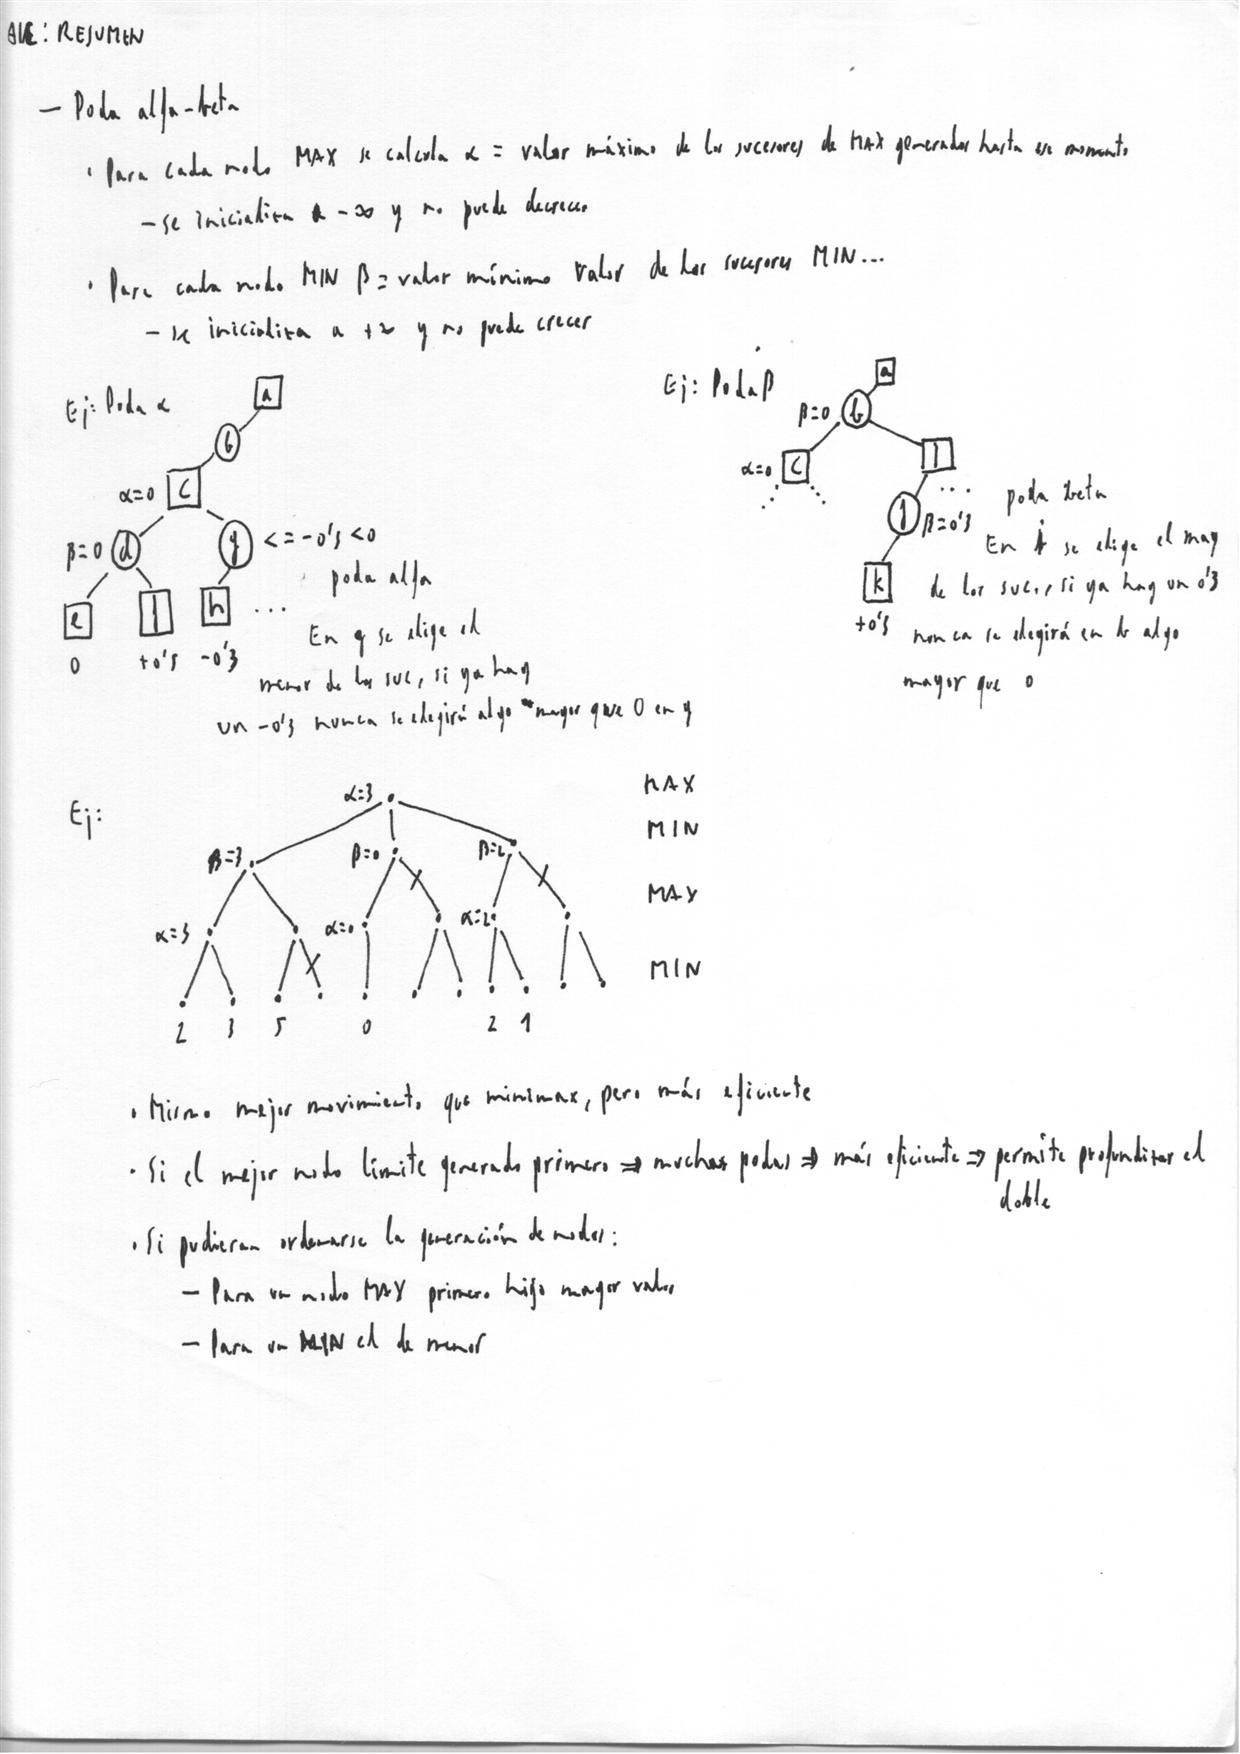 : RESUMEN
— Poda alfa-beta
· Para cada nodo MAX se calcula α = valor máximo de los sucesores de MAX generados hasta ese momento
— se inicializa a -∞ y no puede decrecer
· Para cada nodo MIN β = valor mínimo valor de los sucesores MIN...
— se inicializa a +∞ y no puede crecer
Ej: Poda α
a
b
α=0 c
β=0 d g <= -0'3 < 0
e f h ...
0 +0'5 -0'3
poda alfa
En g se elige el
menor de los suc, si ya hay
un -0'3 nunca se elegirá algo mayor que 0 en g
Ej: Poda β
a
β=0 b
α=0 c
j β=0'3
k
+0'3
...
poda beta
En se elige el may
de los suc., si ya hay un 0'3
nunca se elegirá en b algo
mayor que 0
Ej:
α=3 MAX
β=3 β=0 β=2 MIN
α=3 α=0 α=2 MAX
MIN
2 3 5 0 2 1
· Mismo mejor movimiento que minimax, pero más eficiente
· Si el mejor nodo límite generado primero ⇒ muchas podas ⇒ más eficiente ⇒ permite profundizar el
doble
· Si pudieran ordenarse la generación de nodos:
— Para un nodo MAX primero hijo mayor valor
— Para un MIN el de menor